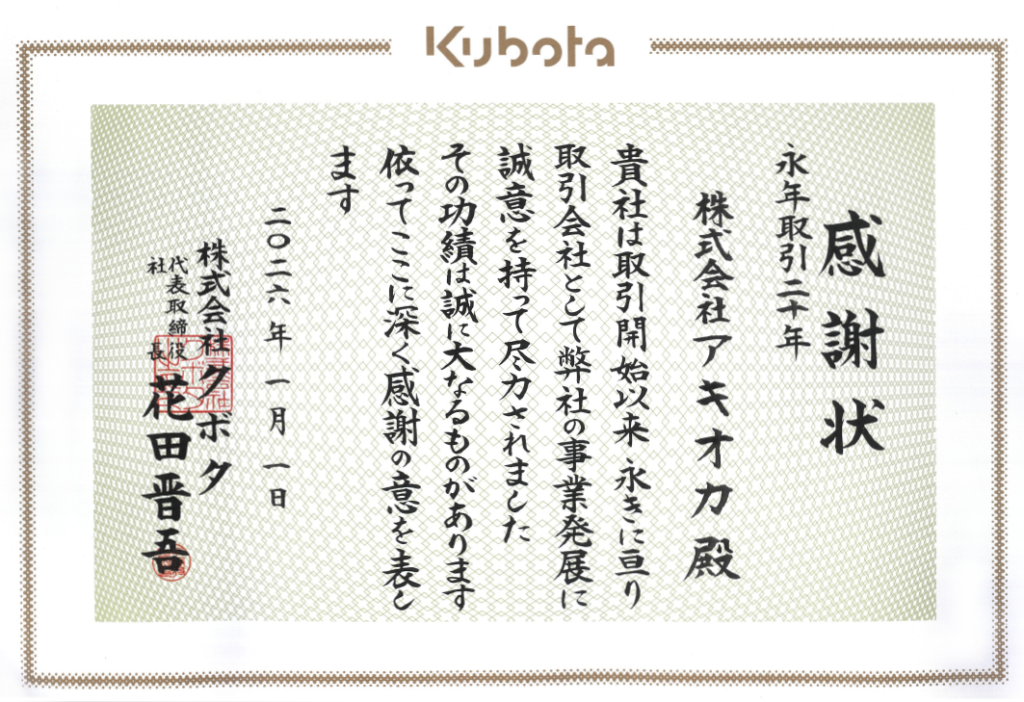 Kubota
感謝状
永年取引二十年
株式会社アキオカ殿
貴社は取引開始以来永きに亘り
取引会社として弊社の事業発展に
誠意を持って尽力されました
その功績は誠に大なるものがあります
依ってここに深く感謝の意を表し
ます
二〇二六年一月一日
株式会社クボタ
代表取締役
社長
花田晋吾